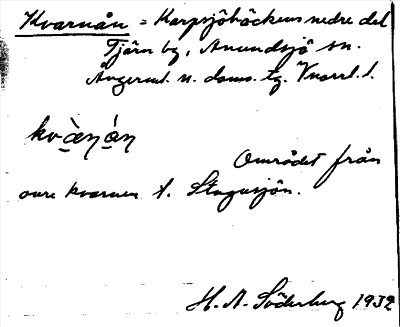 Kvarnån = Karpsjöbäckens nedre del
Tjärn by, Anundsjö sn.
Ångerml. n. doms. tg. Vnorrl. l.
kvæ̀ŋán
Området från
övre kvarnen t. Stugusjön.
H. A. Söderberg 1932